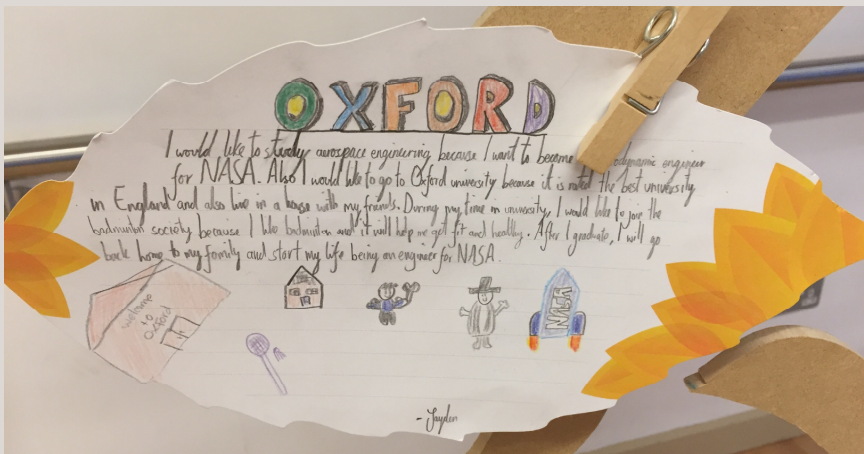 OXFORD
I would like to study aerospace engineering because I want to become odynamic engineer
for NASA. Also I would like to go to Oxford university because it is rated the best university
in England and also live in a house with my friends. During my time in university, I would like to join the
badminton society because I like badminton and it will help me get fit and healthy. After I graduate, I will go
back home to my family and start my life being an engineer for NASA.
Welcome
to
Oxford
NASA
- Jayden